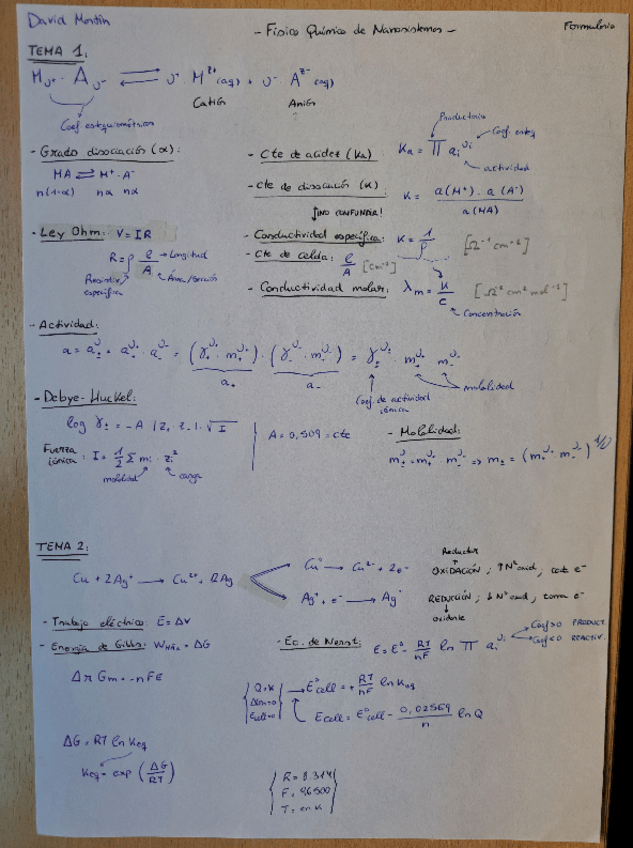 David
- Físico Química de Nanosistemas -
Formulario
TEMA 1:
Mν+ · Aν- ⇌ ν+ M^z+ (aq) + ν- A^z- (aq)
Catión
Anión
Coef estequiométricos
- Grado disociación (α):
MA ⇌ M⁺ · A⁻
n(1-α) nα nα
- Cte de acidez (Ka)
Productorio
Ka = Π ai^νi
Coef. esteq
actividad
- Cte de disociación (K)
K = a(M⁺) · a(A⁻) / a(MA)
¡NO CONFUNDIR!
- Ley Ohm: V = IR
R = ρ l/A
Longitud
Área/Sección
específica
- Conductividad específica: K = 1/ρ [Ω⁻¹ cm⁻¹]
- Cte de Celda: l/A [cm⁻¹]
- Conductividad molar: λm = K/C [Ω⁻¹ cm² mol⁻¹]
Concentración
- Actividad:
a = a±^ν = a+^ν+ · a-^ν- = (γ+^ν+ · m+^ν+) · (γ-^ν- · m-^ν-) = γ±^ν · m+^ν+ · m-^ν-
a+ a-
Coef. de actividad iónica
molalidad
- Debye-Huckel:
log γ± = -A |Z+ Z-| · √I
A = 0,509 = cte
Fuerza iónica: I = 1/2 Σ mi · zi²
molalidad
carga
- Molalidad:
m±^ν = m+^ν+ · m-^ν- ⇒ m± = (m+^ν+ · m-^ν-)^1/ν
TEMA 2:
Cu + 2Ag⁺ → Cu²⁺ + 2Ag
Cu → Cu²⁺ + 2e⁻
Reductor
OXIDACIÓN; ↑ Nº oxid, cede e⁻
Ag⁺ + e⁻ → Ag
REDUCCIÓN; ↓ Nº oxid, toma e⁻
Oxidante
- Trabajo eléctrico: E = ΔV
- Energía de Gibbs: WMÁX = ΔG
- Ec. de Nernst: E = E° - RT/nF ln Π ai^νi
Coef > 0 PRODUCT.
Coef < 0 REACTIV.
Δr Gm = -nFE
Q = K
Ecell = 0
E°cell = + RT/nF ln Keq
Ecell = E°cell - 0,02569/n ln Q
ΔG = RT ln Keq
Keq = exp (ΔG/RT)
R = 8.314
F = 96500
T = en K